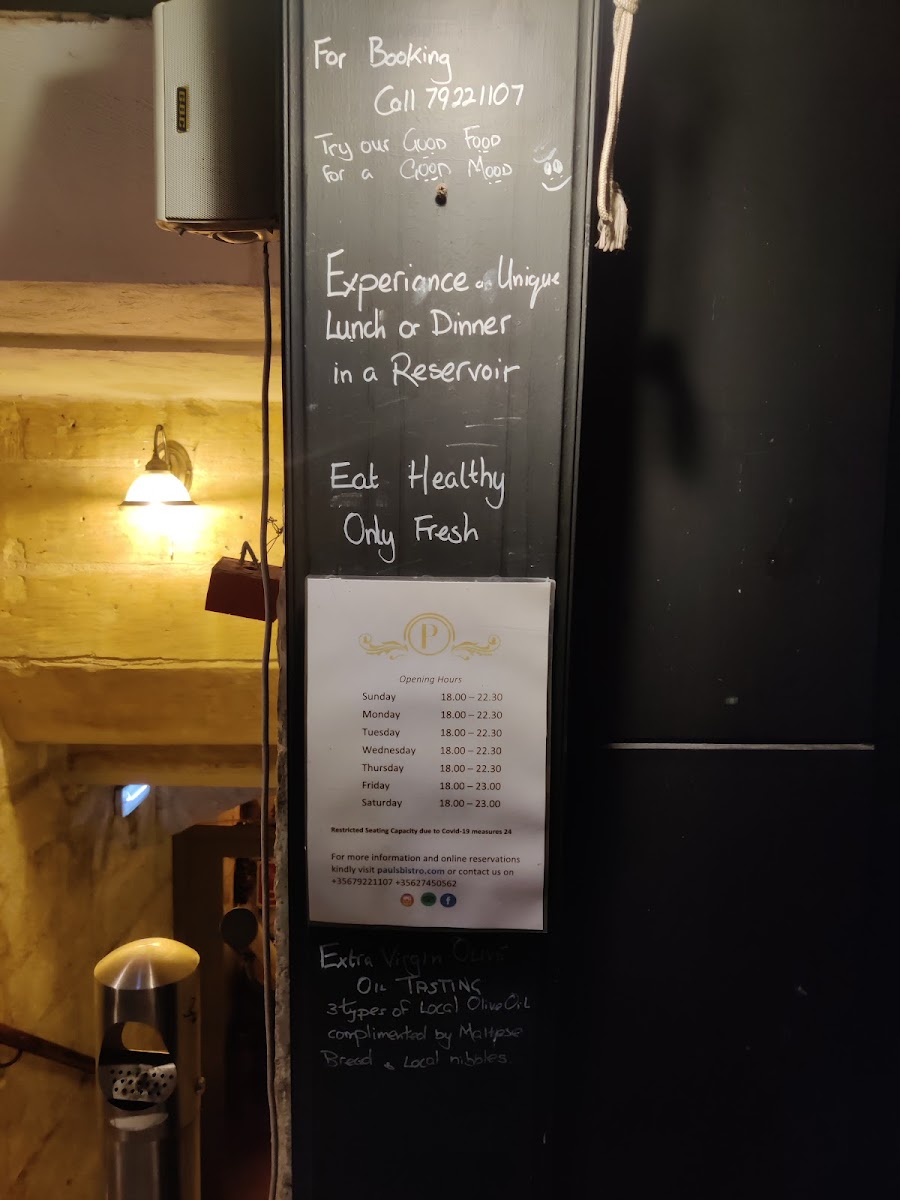 For Booking
Call 79221107
Try our GOOD FOOD
For a GOOD MOOD
Experiance a Unique
Lunch or Dinner
in a Reservoir
Eat Healthy
Only Fresh
P
Opening Hours
Sunday 18.00 – 22.30
Monday 18.00 – 22.30
Tuesday 18.00 – 22.30
Wednesday 18.00 – 22.30
Thursday 18.00 – 22.30
Friday 18.00 – 23.00
Saturday 18.00 – 23.00
Restricted Seating Capacity due to Covid-19 measures 24
For more information and online reservations
kindly visit paulsbistro.com or contact us on
+35679221107 +35627450562
Extra Virgin OLIVE
OIL TASTING
3 types of Local Olive Oil
complimented by Maltese
Bread & Local nibbles